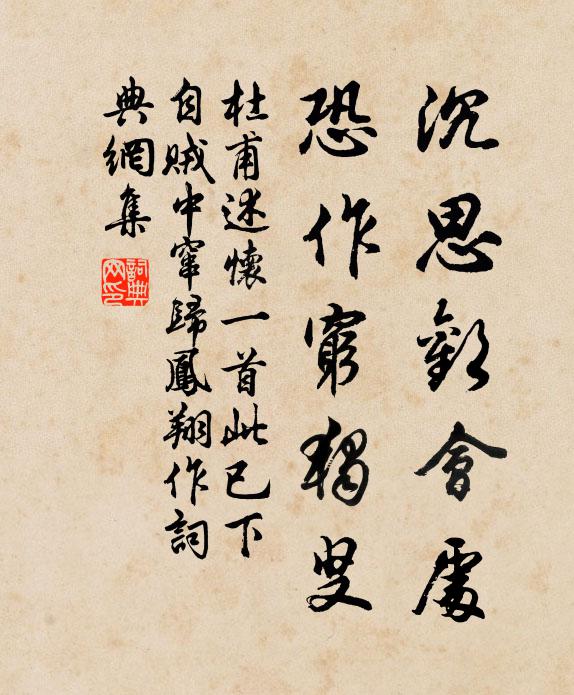 沉思歡會處
恐作窮獨叟
杜甫述懷一首此已下
自賊中窜歸鳳翔作詞
典網集
詞典
网印